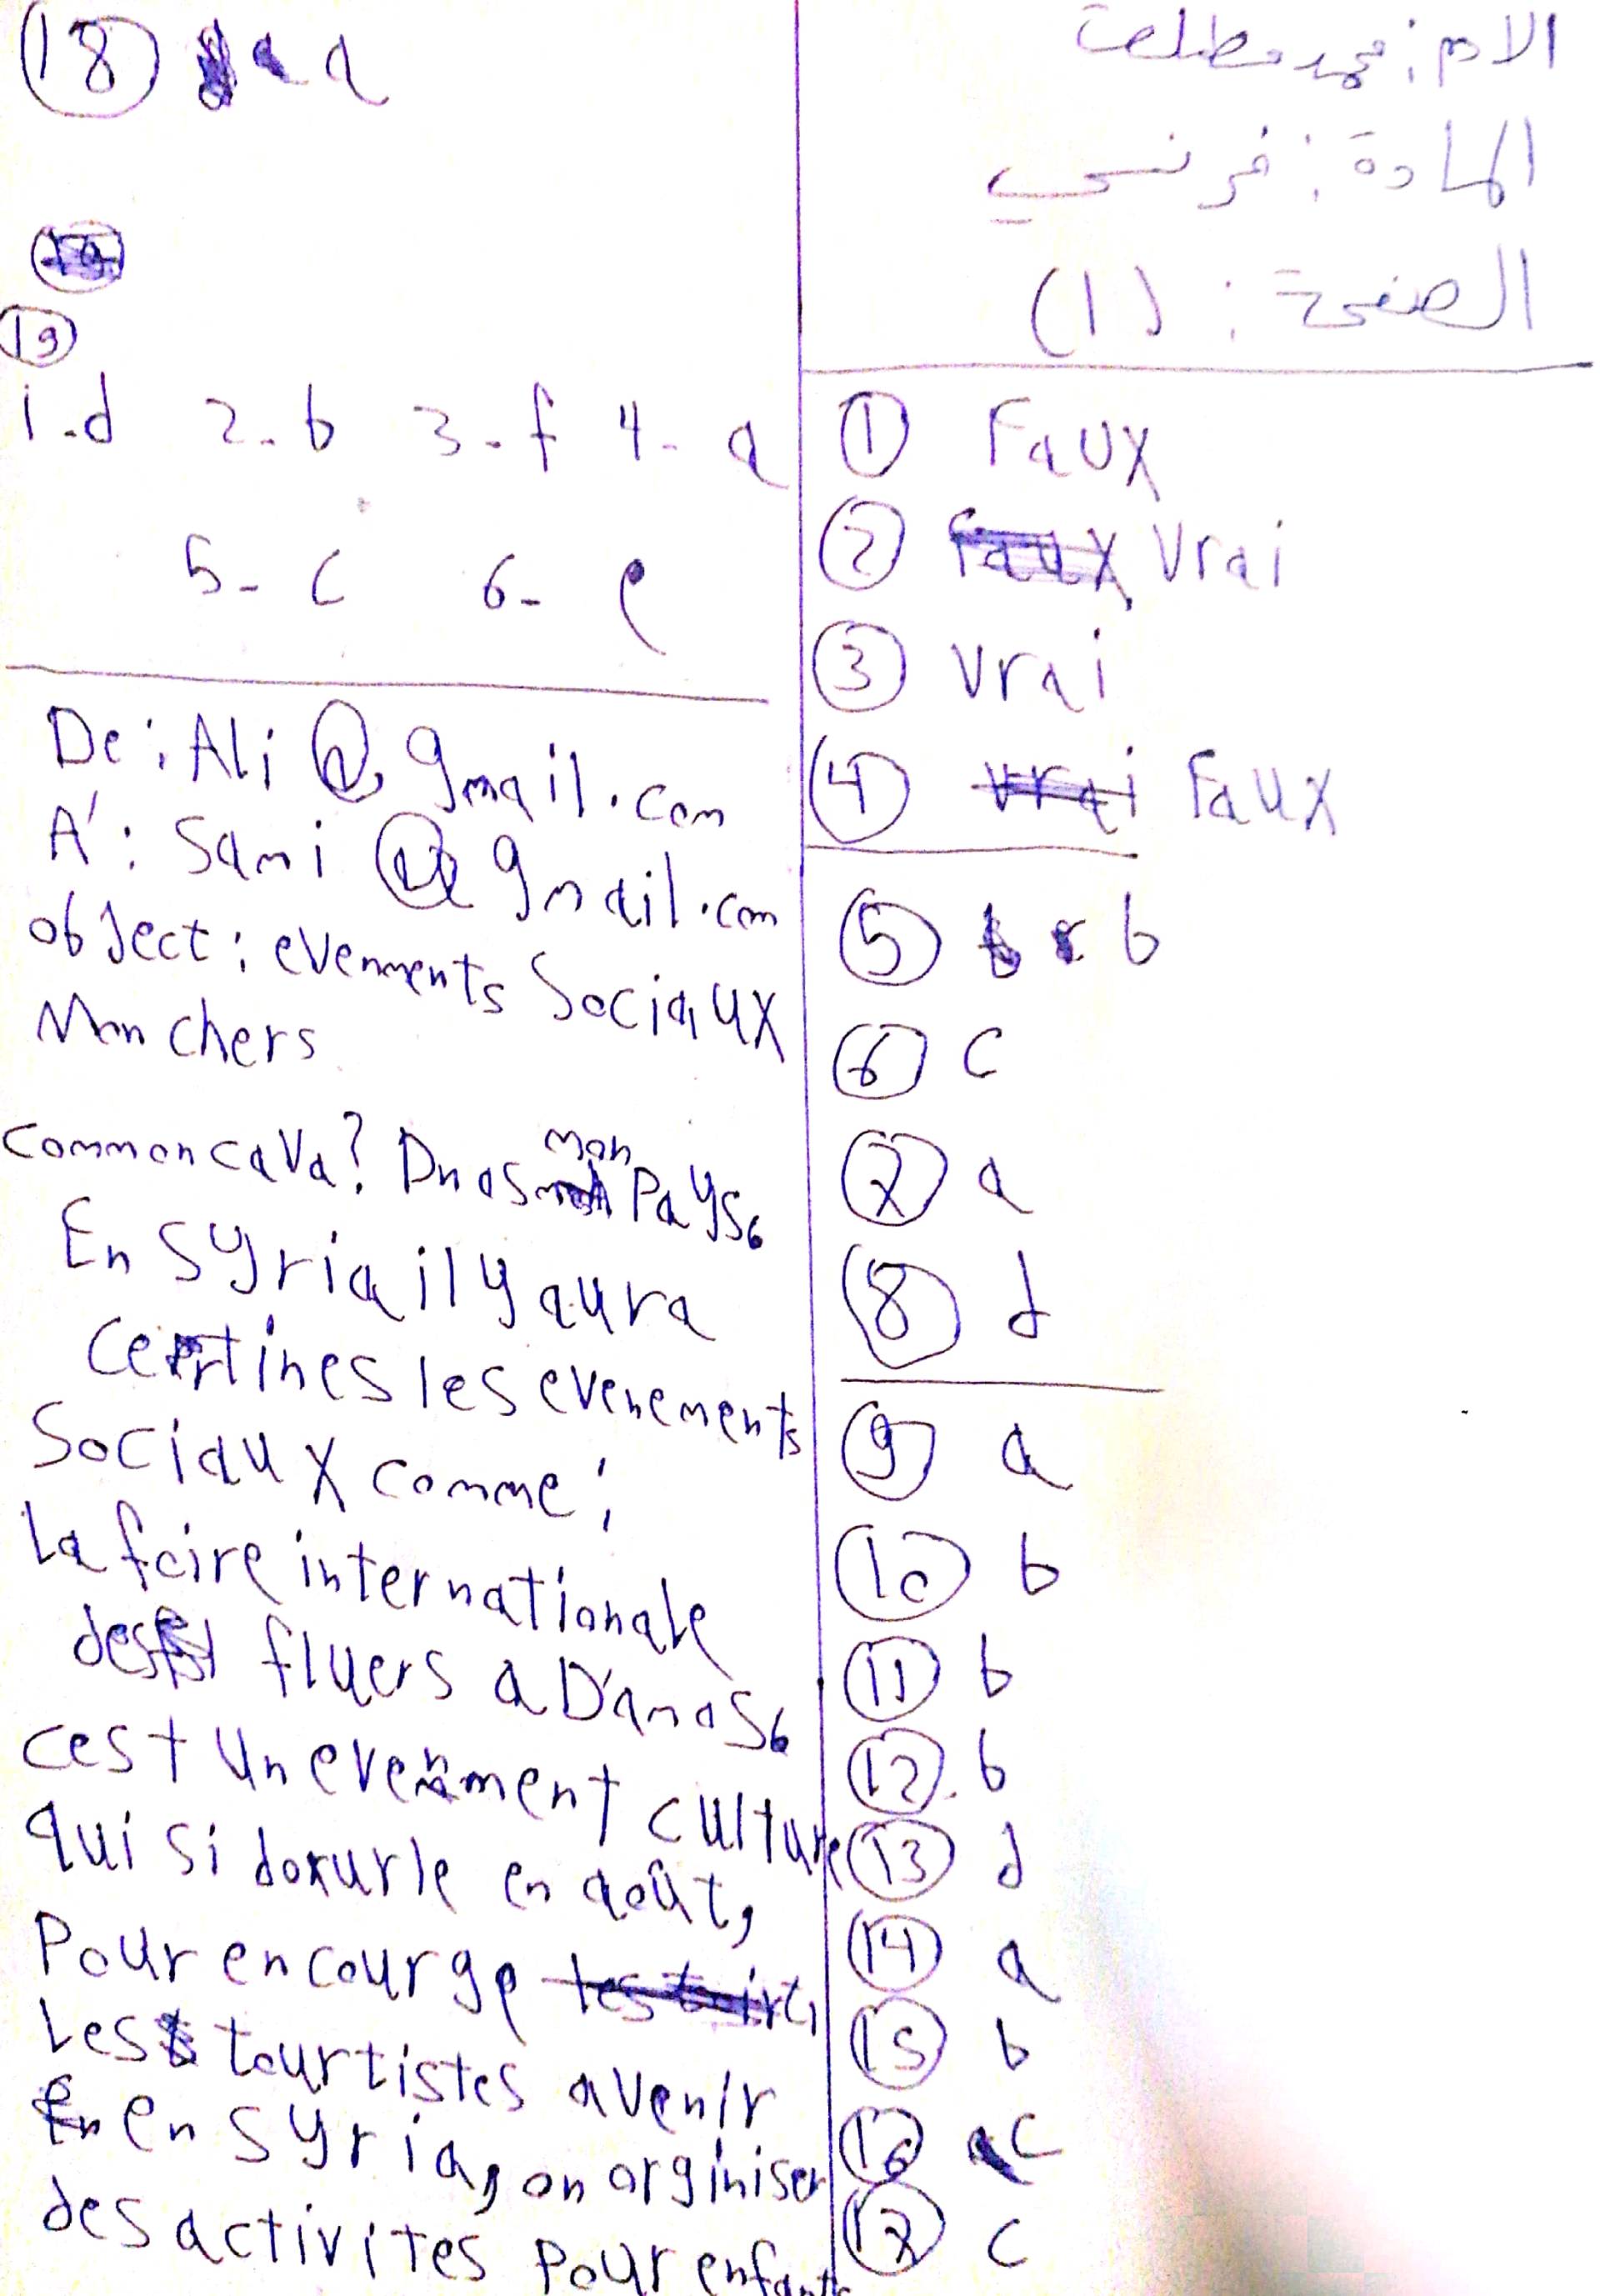 الاسم: محمد مطلعت
المادة: فرنسي
الصفحة: (1)
① Faux
② Faux Vrai
③ Vrai
④ Vrai Faux
⑤ b
⑥ c
⑦ a
⑧ d
⑨ a
⑩ b
⑪ b
⑫ b
⑬ d
⑭ a
⑮ b
⑯ c
⑰ c
⑱ a
⑲
1-d 2-b 3-f 4-a
5-c 6-e
De: Ali @ gmail.com
A': Sami @ gmail.com
object: evenments Sociaux
Mon chers
common ca Va? Dnas mon Pays,
En Syria il y aura
certines les evenements
Sociaux comme:
La foire internationale
des fluers a Damas,
cest un evenment culture
qui si dorurle en août,
Pour encourge
Les tourtistes a venir
en Syria, on orginiser
des activites pour enfants